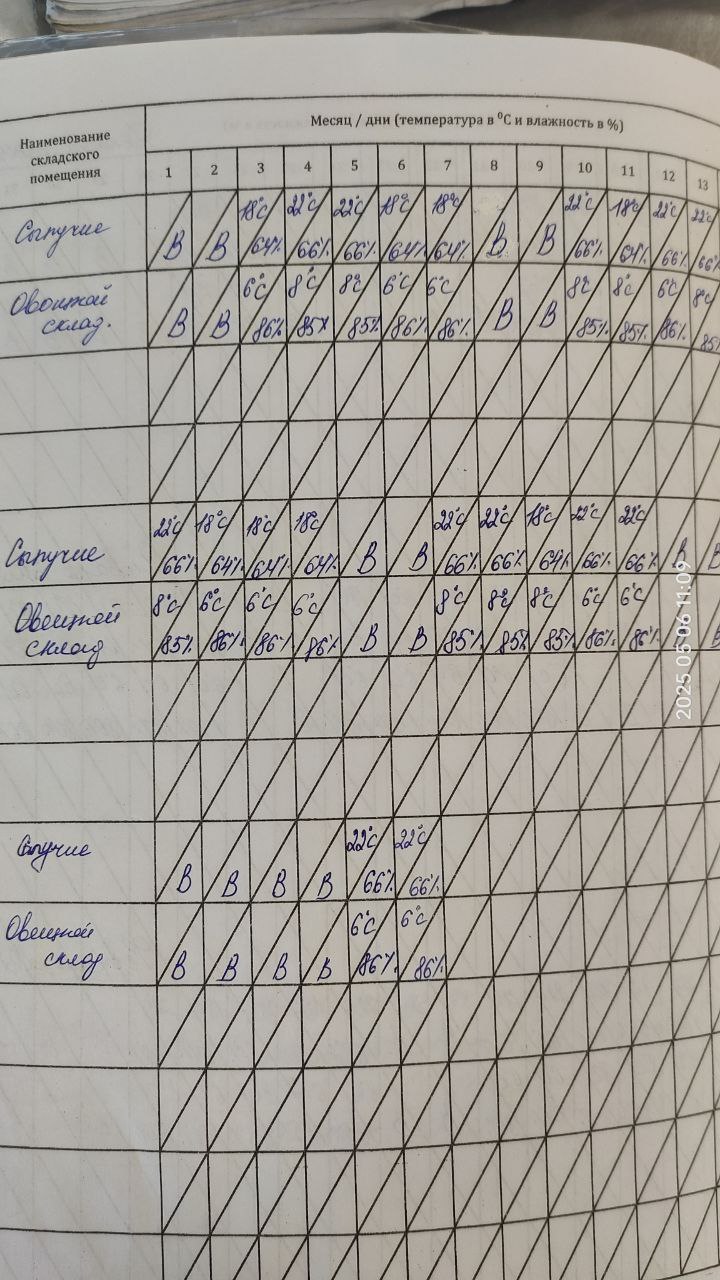 Месяц / дни (температура в ⁰С и влажность в %)
Наименование
складского
помещения
1 2 3 4 5 6 7 8 9 10 11 12 13
18°C 22°C 22°C 18°C 18°C 22°C 18°C 22°C 22°C
Сыпучие
В В 64% 66% 66% 64% 64% В В 66% 64% 66% 66%
6°C 8°C 8°C 6°C 6°C 8°C 8°C 6°C 8°C
Овощной
склад.
В В 86% 85% 85% 86% 86% В В 85% 85% 86% 85%
22°C 18°C 18°C 18°C 22°C 22°C 18°C 22°C 22°C
Сыпучие
66% 64% 64% 64% В В 66% 66% 64% 66% 66% В В
8°C 6°C 6°C 6°C 8°C 8°C 8°C 6°C 6°C
Овощной
склад
85% 86% 86% 86% В В 85% 85% 85% 86% 86% В
2025 05 06 11:09
22°C 22°C
Сыпучие
В В В В 66% 66%
6°C 6°C
Овощной
склад
В В В В 86% 86%